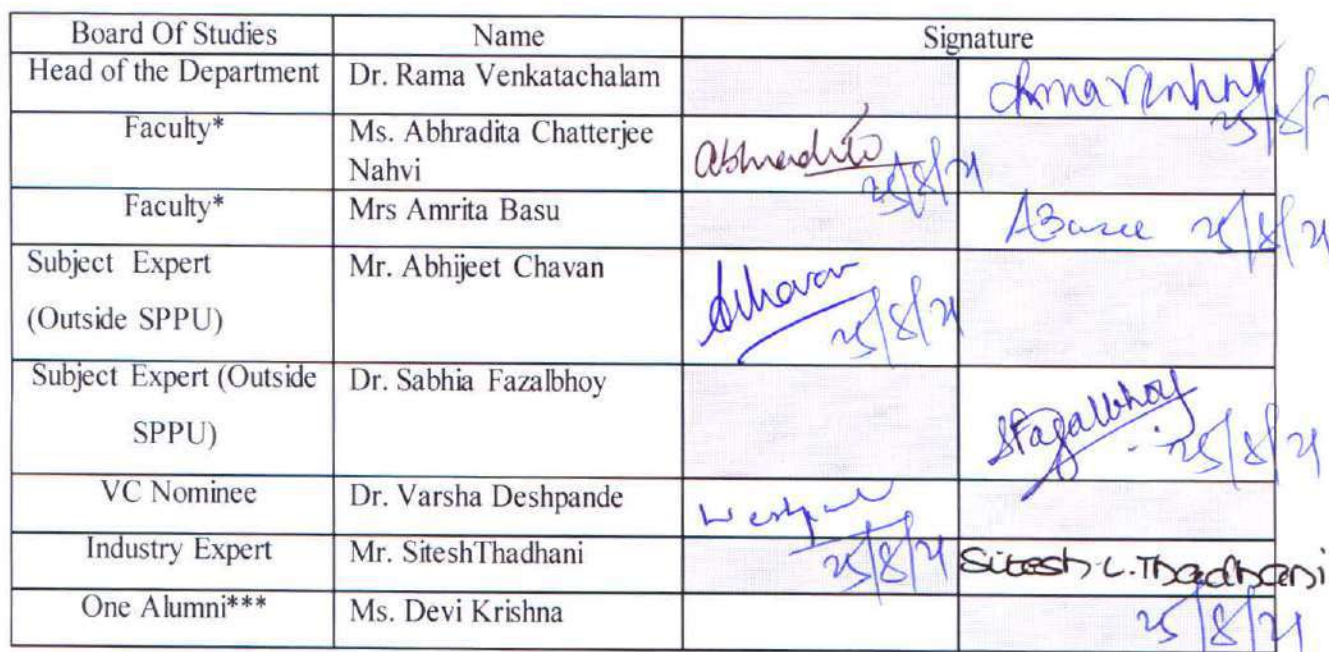 Board Of Studies Name Signature
Head of the Department Dr. Rama Venkatachalam
25/8/2
Faculty* Ms. Abhradita Chatterjee
Nahvi
Abhradita
25/8/21
Faculty* Mrs Amrita Basu
ABasu 25/8/21
Subject Expert
(Outside SPPU)
Mr. Abhijeet Chavan
AChavan
25/8/21
Subject Expert (Outside
SPPU)
Dr. Sabhia Fazalbhoy
SFazalbhoy
25/8/21
VC Nominee Dr. Varsha Deshpande
25/8/21
Industry Expert Mr. SiteshThadhani
Sitesh L. Thadhani
25/8/21
One Alumni*** Ms. Devi Krishna